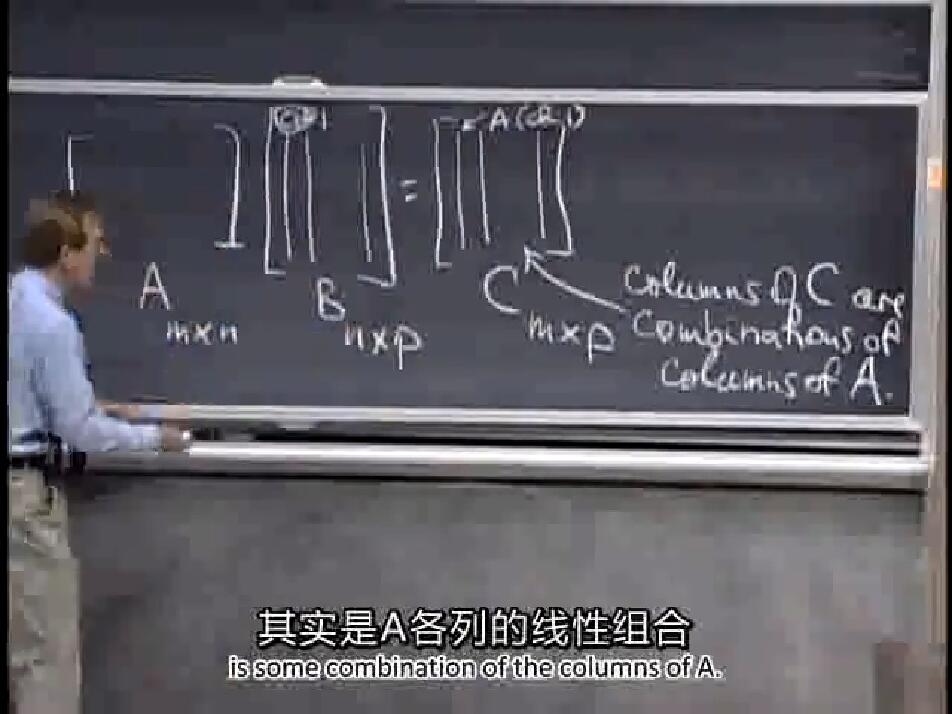 col 1
A (col 1)
=
A
m×n
B
n×p
C
m×p
Columns of C are
Combinations of
Columns of A.
其实是A各列的线性组合
is some combination of the columns of A.